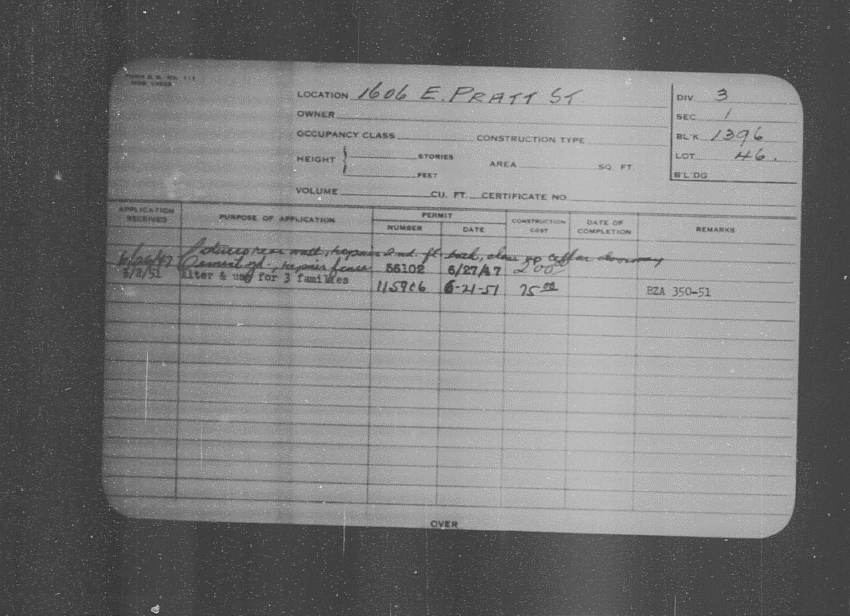 FORM B. B. No. 111
LOCATION 1606 E. PRATT ST.
DIV 3
OWNER
SEC 1
OCCUPANCY CLASS CONSTRUCTION TYPE
BL'K 1396
HEIGHT STORIES AREA SQ. FT.
LOT 46.
FEET
B'L'DG
VOLUME CU. FT. CERTIFICATE NO
APPLICATION RECEIVED PURPOSE OF APPLICATION PERMIT NUMBER DATE CONSTRUCTION COST DATE OF COMPLETION REMARKS
rear wall, repair 2nd. fl. close up cellar doorway
6/26/47 repair fence 56102 6/27/47 200
5/2/51 Alter & use for 3 families
115906 6-21-51 75 00 BZA 350-51
OVER